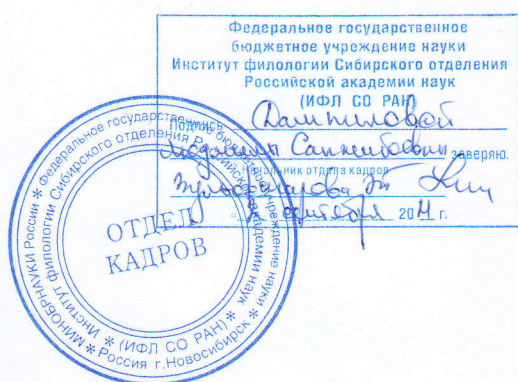 Федеральное государственное
бюджетное учреждение науки
Институт филологии Сибирского отделения
Российской академии наук
(ИФЛ СО РАН)
Подпись Дампиловой
заверяю.
Начальник отдела кадров
сентября 20 г.
МИНОБРНАУКИ России * Федеральное государственное бюджетное учреждение науки *
Институт филологии Сибирского отделения Российской академии наук *
(ИФЛ СО РАН) *
Россия г.Новосибирск *
ОТДЕЛ
КАДРОВ